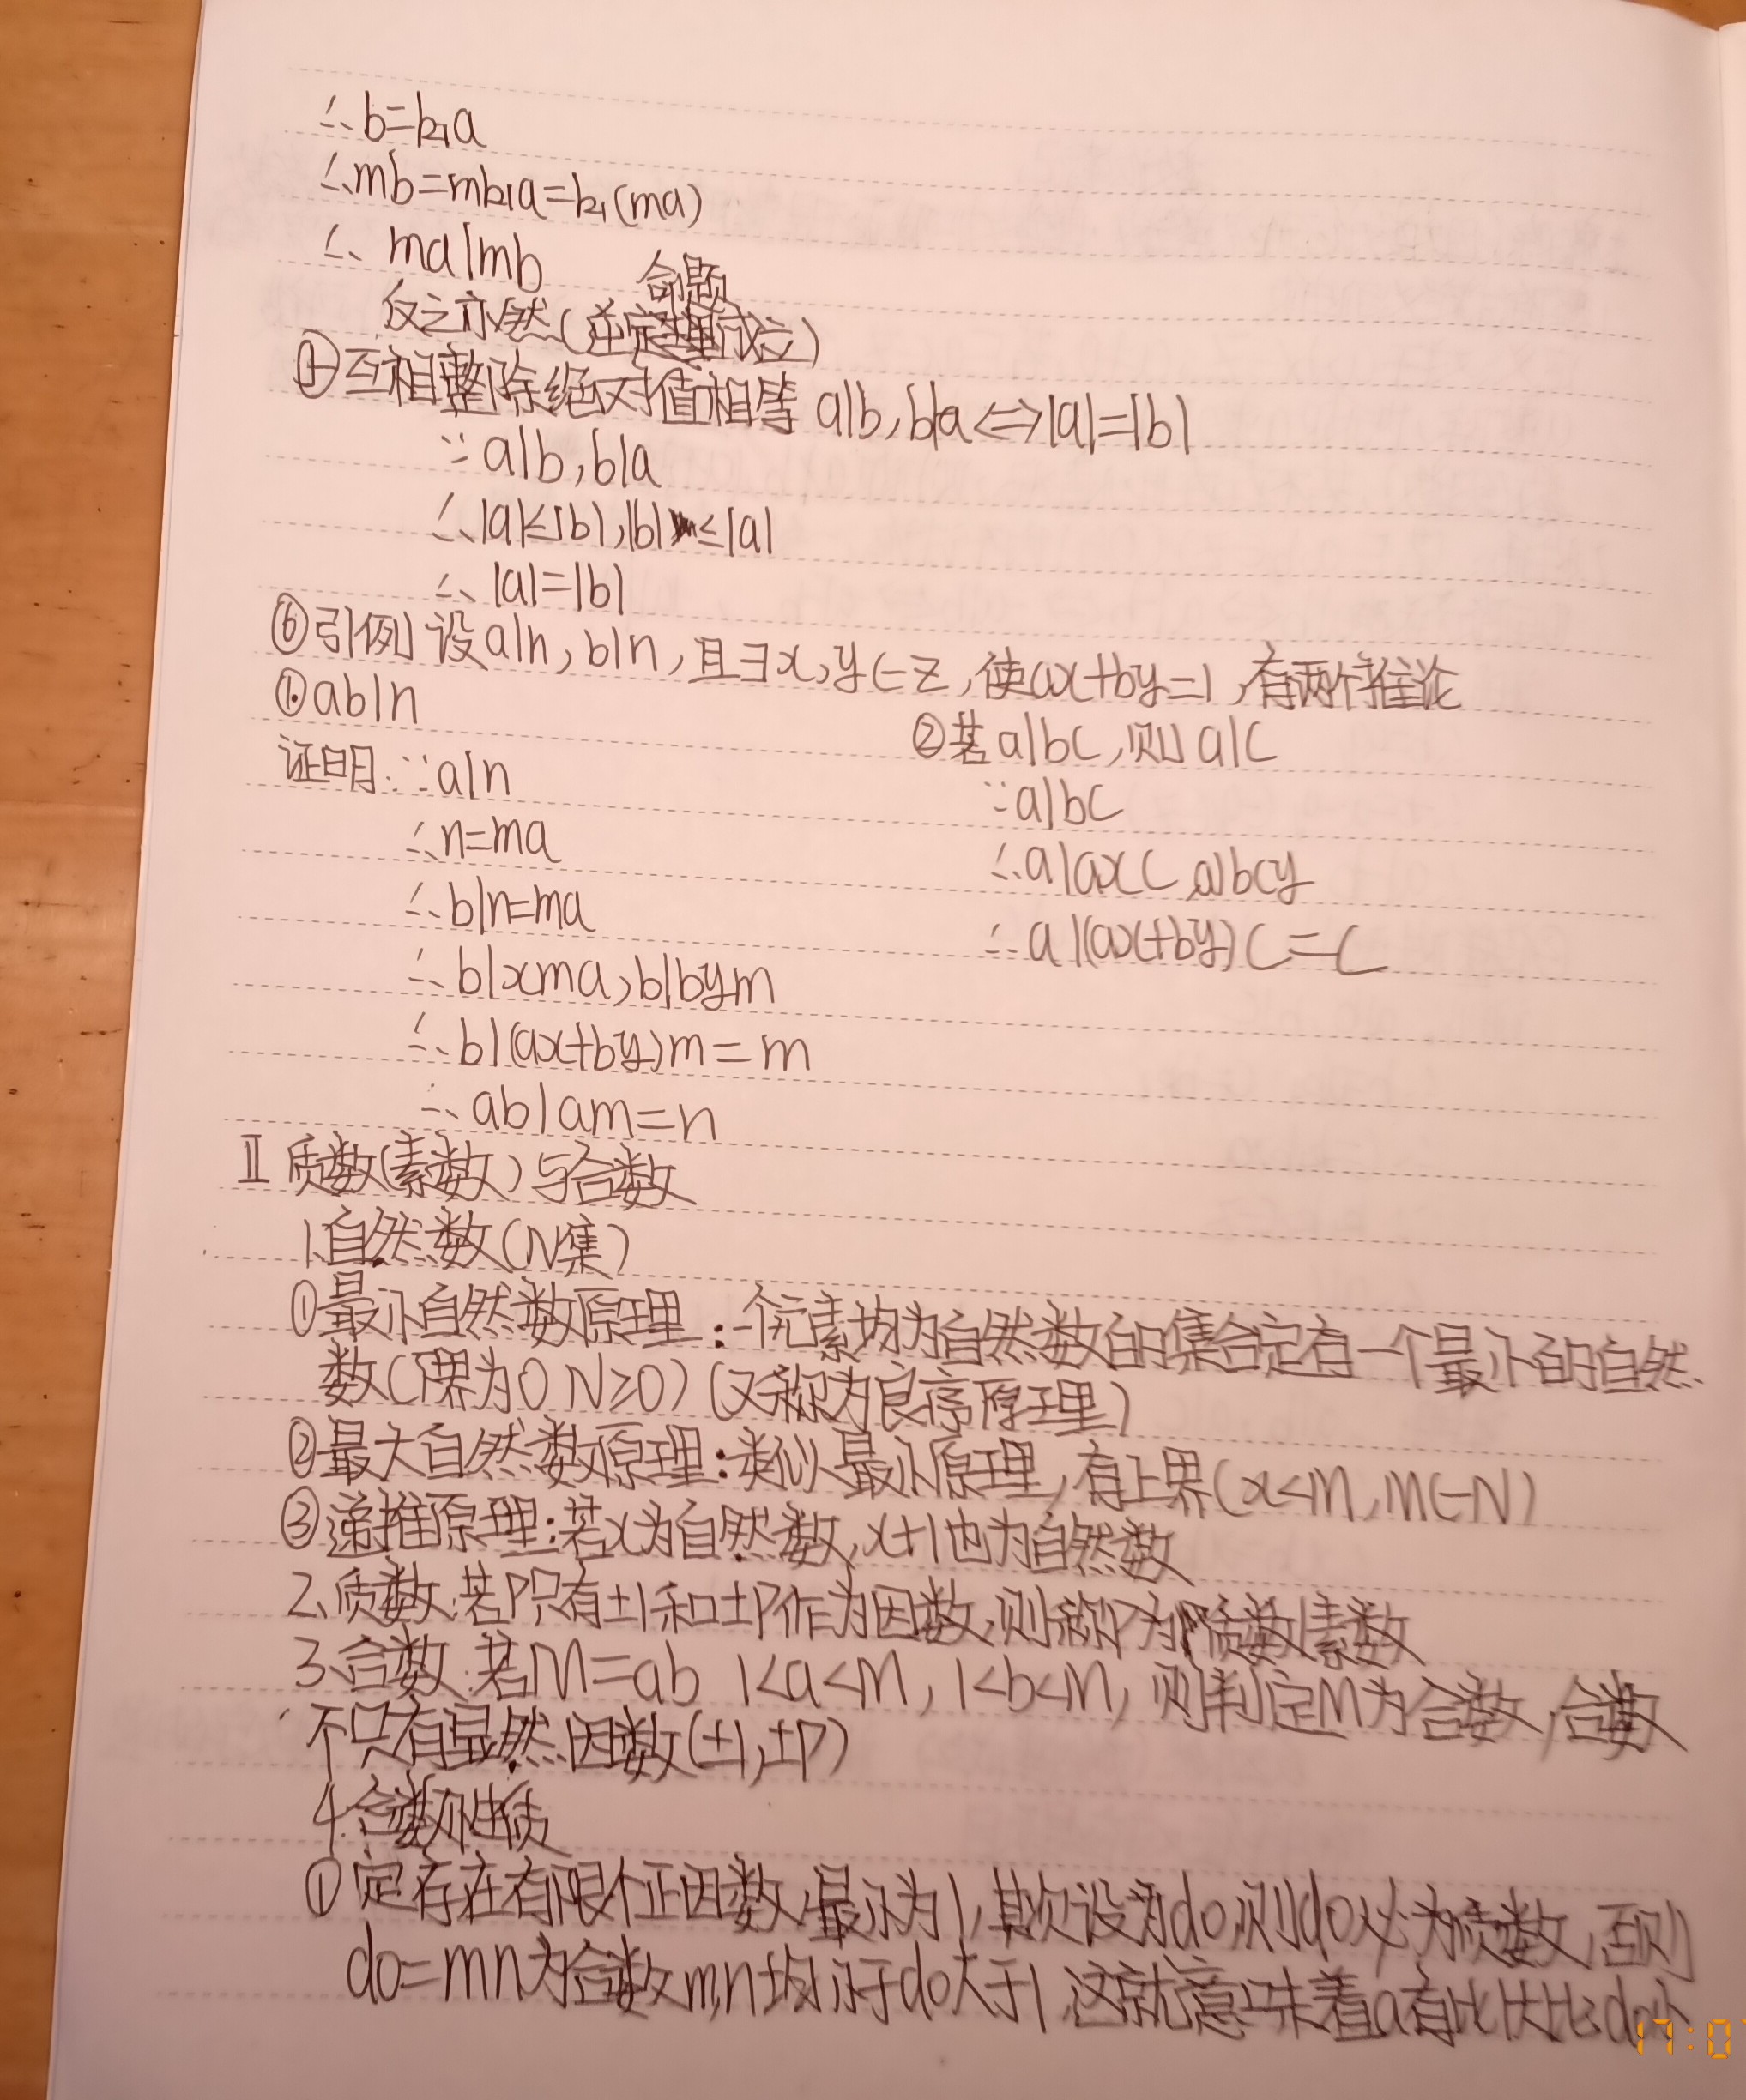 ∴b=k₁a
∴mb=mk₁a=k₁(ma)
∴ ma|mb
命题
反之亦然(逆定理成立)
互相整除绝对值相等 a|b,b|a⇔|a|=|b|
∵a|b,b|a
∴|a|≤|b|,|b|≤|a|
∴ |a|=|b|
⑥引例 设a|n,b|n,且∃x,y∈Z,使ax+by=1,有两个推论
①ab|n
②若a|bc,则a|c
证明:∵a|n
∵a|bc
∴n=ma
∴a|axc,a|bcy
∴b|n=ma
∴a|(ax+by)c=c
∴b|xma,b|bym
∴b|(ax+by)m=m
∴ab|am=n
Ⅱ 质数(素数)与合数
1.自然数(N集)
①最小自然数原理:一个元素均为自然数的集合定有一个最小的自然
数(下界为0 N≥0)(又称为良序原理)
②最大自然数原理:类似最小原理,有上界(x<M,M∈N)
③递推原理:若x为自然数,x+1也为自然数
2.质数:若P只有±1和±P作为因数,则称P为质数|素数
3.合数:若M=ab 1<a<M,1<b<M,则判定M为合数,合数
不只有显然因数(±1,±P)
4.合数性质
①定存在有限个正因数,最小为1,其次设为d0,则d0必为质数,否则
d0=mn为合数m,n均小于d0大于1,这就意味着a有比1大比d0小
17:0